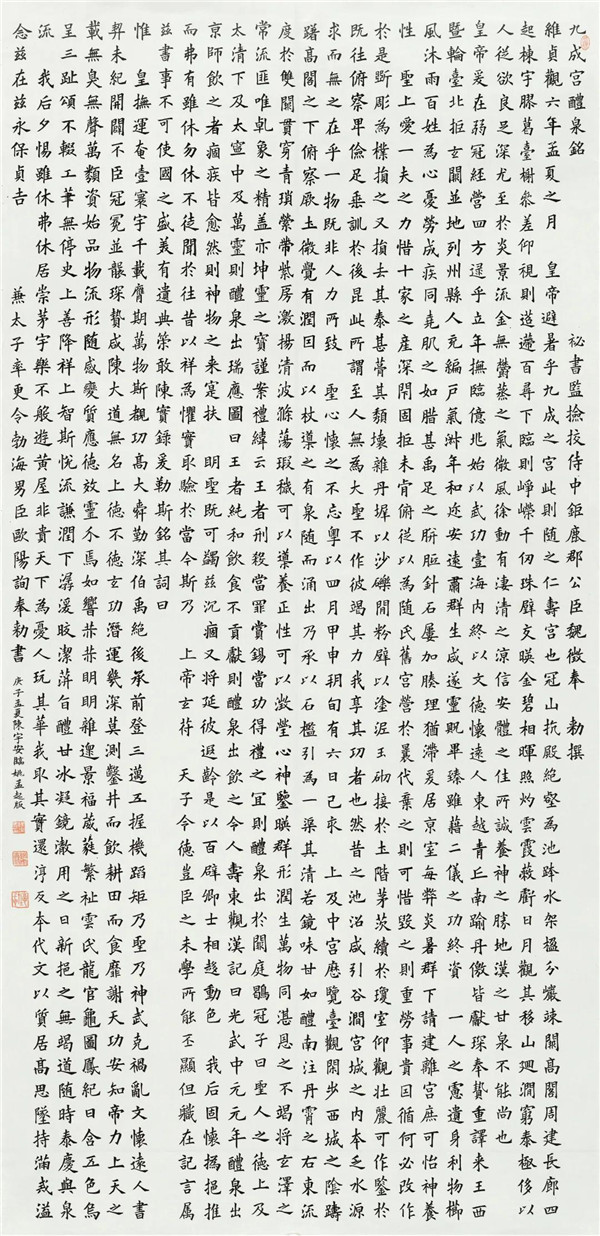 九成宮醴泉銘　祕書監撿挍侍中鉅鹿郡公臣魏徵奉　勑撰
維貞觀六年孟夏之月　皇帝避暑乎九成之宮此則隨之仁壽宮也冠山抗殿絕壑為池跨水架楹分巖竦闕高閣周建長廊四
起棟宇膠葛臺榭參差仰視則迢遰百尋下臨則崢嶸千仞珠壁交暎金碧相暉照灼雲霞蔽虧日月觀其移山迴澗窮泰極侈以
人從欲良足深尤至於炎景流金無鬱蒸之氣微風徐動有淒清之涼信安體之佳所誠養神之勝地漢之甘泉不能尚也
皇帝爰在弱冠經營四方逮乎立年撫臨億兆始以武功壹海內終以文德懷遠人東越青丘南踰丹儌皆獻琛奉贄重譯來王西
暨輪臺北拒玄闕並地列州縣人充編戶氣淑年和迩安遠肅群生咸遂靈貺畢臻雖藉二儀之功終資　一人之慮遺身利物櫛
風沐雨百姓為心憂勞成疾同堯肌之如腊甚禹足之胼胝針石屢加腠理猶滯爰居京室每弊炎暑群下請建離宮庶可怡神養
性　聖上愛一夫之力惜十家之產深閇固拒未肯俯從以為隨氏舊宮營於曩代棄之則可惜毀之則重勞事貴因循何必改作
於是斲彫為樸損之又損去其泰甚葺其頹壞雜丹墀以沙礫間粉壁以塗泥玉砌接於土階茅茨續於瓊室仰觀壯麗可作鑒於
既往俯察卑儉足垂訓於後昆此所謂至人無為大聖不作彼竭其力我享其功者也然昔之池沼咸引谷澗宮城之內本乏水源
求而無之在乎一物既非人力所致　聖心懷之不忘粵以四月甲申朔旬有六日己亥　上及中宮歷覽臺觀閑步西城之陰躊
躇高閣之下俯察厥土微覺有潤因而以杖導之有泉隨而涌出乃承以石檻引為一渠其清若鏡味甘如醴南注丹霄之右東流
度於雙闕貫穿青瑣縈帶紫房激揚清波滌蕩瑕穢可以導養正性可以澂瑩心神鑒暎群形潤生萬物同湛恩之不竭將玄澤之
常流匪唯乹象之精蓋亦坤靈之寶謹案禮緯云王者刑殺當罪賞錫當功得禮之宜則醴泉出於闕庭鶡冠子曰聖人之德上及
太清下及太寧中及萬靈則醴泉出瑞應圖曰王者純和飲食不貢獻則醴泉出飲之令人壽東觀漢記曰光武中元元年醴泉出
京師飲之者痼疾皆愈然則神物之來寔扶　明聖既可蠲茲沉痼又將延彼遐齡是以百辟卿士相趍動色　我后固懷撝挹推
而弗有雖休勿休不徒聞於往昔以祥為懼實取驗於當今斯乃　上帝玄符　天子令德豈臣之末學所能丕顯但職在記言屬
茲書事不可使國之盛美有遺典策敢陳實錄爰勒斯銘其詞曰
惟　皇撫運奄壹寰宇千載膺期萬物斯覩功高大舜勤深伯禹絕後承前登三邁五握機蹈矩乃聖乃神武克禍亂文懷遠人書
契未紀開闢不臣冠冕並襲琛贄咸陳大道無名上德不德玄功潛運幾深莫測鑿井而飲耕田而食靡謝天功安知帝力上天之
載無臭無聲萬類資始品物流形隨感變質應德效靈介焉如響赫赫明明雜遝景福葳蕤繁祉雲氏龍官龜圖鳳紀日含五色烏
呈三趾頌不輟工筆無停史上善降祥上智斯悅流謙潤下潺湲皎潔蓱旨醴甘冰凝鏡澈用之日新挹之無竭道隨時泰慶與泉
流　我后夕惕雖休弗休居崇茅宇樂不般遊黃屋非貴天下為憂人玩其華我取其實還淳反本代文以質居高思墜持滿戒溢
念茲在茲永保貞吉　兼太子率更令勃海男臣歐陽詢奉勑書
庚子孟夏陳宇安臨姚孟起版